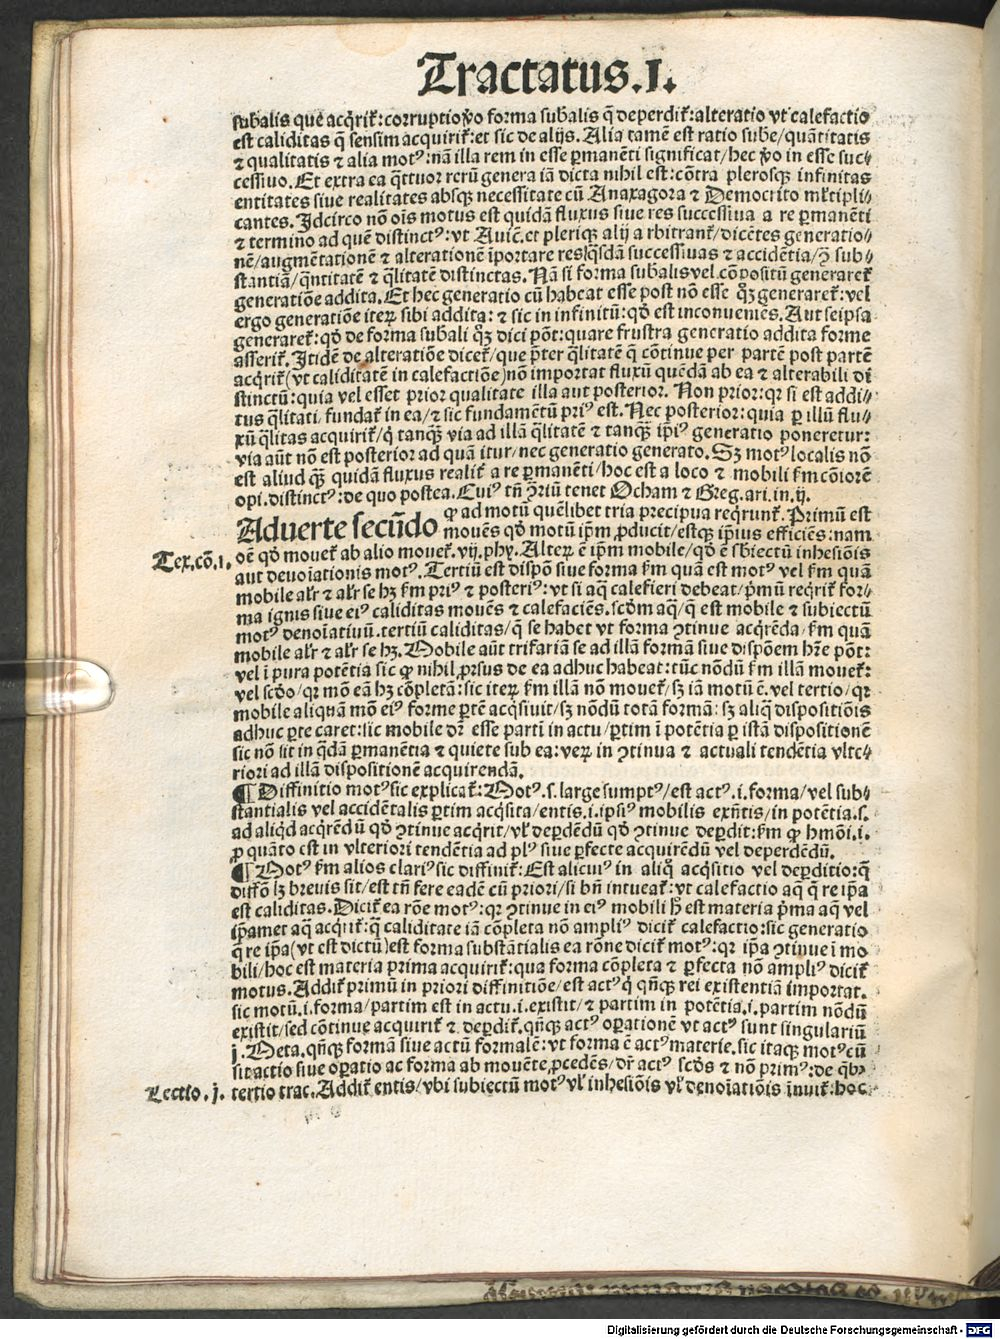 Tractatus.I.
subalis que acq̄rit̃: corruptio ꝟo forma subalis q̄ deperdit̃: alteratio vt calefactio
est caliditas q̄ sensim acquirit̃: et sic de alijs. Alia tamẽ est ratio sube/quãtitatis
⁊ qualitatis ⁊ alia motꝰ: nã illa rem in esse ꝑmanẽti significat/hec ꝟo in esse suc⸗
cessiuo. Et extra ea q̃ttuor rerũ genera iã dicta nihil est: cõtra plerosqꝫ infinitas
entitates siue realitates absqꝫ necessitate cũ Anaxagora ⁊ Democrito ml̃tipli⸗
cantes. Idcirco nõ oĩs motus est quidã fluxus siue res successiua a re ꝑmanẽti
⁊ termino ad quẽ distinctꝰ: vt Auic̃. et pleriqꝫ alij arbitrant̃/dicẽtes generatio⸗
nẽ/augmẽtationẽ ⁊ alterationẽ ĩportare res q̃sdã successiuas ⁊ accidẽtia/ꝫ sub⸗
stantiã/q̃ntitatẽ ⁊ q̃litatẽ distinctas. Nã si forma subalis vel cõpositũ generaret̃
generatiõe addita. Et hec generatio cũ habeat esse post nõ esse q̃ꝫ generaret̃: vel
ergo generatiõe iteꝝ sibi addita: ⁊ sic in infinitũ: qd̃ est inconueniẽs. Aut seipsa
generaret̃: qd̃ de forma subali q̃ꝫ dici põt: quare frustra generatio addita forme
asserit̃. Itidẽ de alteratiõe dicet̃/que p̃ter q̃litatẽ q̃ cõtinue per partẽ post partẽ
acq̃rit̃ (vt caliditatẽ in calefactiõe) nõ importat fluxũ quẽdã ab ea ⁊ alterabili di⸗
stinctũ: quia vel esset prior qualitate illa aut posterior. Non prior: qꝛ si est addi⸗
tus q̃litati/fundat̃ in ea/⁊ sic fundamẽtũ priꝰ est. Nec posterior: quia ꝑ illũ flu⸗
xũ q̃litas acquirit̃/q̃ tanqꝫ̃ via ad illã q̃litatẽ ⁊ tanqꝫ̃ ip̃iꝰ generatio poneretur:
via aũt nõ est posterior ad quã itur/nec generatio generato. Sꝫ motꝰ localis nõ
est aliud qꝫ̃ quidã fluxus realit̃ a re ꝑmanẽti/hoc est a loco ⁊ mobili ẜm cõiorẽ
opi. distinctꝰ: de quo postea. Cuiꝰ tñ ꝯ̃riũ tenet Ocham ⁊ Greg. ari. in .ij.
Aduerte secũdo ꝙ ad motũ quẽlibet tria precipua req̃runt̃. Primũ est
mouẽs qd̃ motũ ip̃m ꝓducit/estqꝫ ip̃ius efficiẽs: nam
Tex. cõ. 1. oẽ qd̃ mouet̃ ab alio mouet̃. vij. phy. Alteꝝ ẽ ip̃m mobile/qd̃ ẽ sb̃iectũ inhesiõis
aut denoĩationis motꝰ. Tertiũ est dispõ siue forma ẜm quã est motꝰ vel ẜm quã
mobile alr̃ ⁊ alr̃ se hꝫ ẜm priꝰ ⁊ posteriꝰ: vt si aq̃ calefieri debeat/p̃mũ req̃rit̃ for⸗
ma ignis siue eiꝰ caliditas mouẽs ⁊ calefaciẽs. scd̃m aq̃/q̃ est mobile ⁊ subiectũ
motꝰ denoĩatiuũ. tertiũ caliditas/q̃ se habet vt forma ꝯtinue acq̃rẽda/ẜm quã
mobile alr̃ ⁊ alr̃ se hꝫ. Mobile aũt trifariã se ad illã formã siue dispõem hr̃e põt:
vel ĩ pura potẽtia sic ꝙ nihil ꝓrsus de ea adhuc habeat: tũc nõdũ ẜm illã mouet̃:
vel scd̃o/qꝛ mõ eã hꝫ cõpletã: sic iteꝝ ẜm illã nõ mouet̃/sꝫ iã motũ ẽ. vel tertio/qꝛ
mobile aliquã mõ eiꝰ forme ꝑtẽ acq̃siuit/sꝫ nõdũ totã formã: sꝫ aliq̃ dispositiõis
adhuc ꝑte caret: sic mobile dr̃ esse parti in actu/ꝑtim ĩ potẽtia ꝑ istã dispositionẽ
sic nõ sit in q̃dã ꝑmanẽtia ⁊ quiete sub ea: veꝝ in ꝯtinua ⁊ actuali tendẽtia vlte⸗
riori ad illã dispositionẽ acquirendã.
¶ Diffinitio motꝰ sic explicat̃: Motꝰ .s. large sumptꝰ/est actꝰ .i. forma/vel sub⸗
stantialis vel accidẽtalis ꝑtim acq̃sita/entis .i. ipsiꝰ mobilis exñtis/in potẽtia .s.
ad aliq̃d acq̃rẽdũ qd̃ ꝯtinue acq̃rit/vl̃ deꝑdẽdũ qd̃ ꝯtinue deꝑdit: ẜm ꝙ hmõi .i.
ꝓ quãto est in vlteriori tendẽtia ad plꝰ siue ꝑfecte acquirẽdũ vel deperdẽdũ.
¶ Motꝰ ẜm alios clariꝰ sic diffinit̃: Est alicuiꝰ in aliq̃ acq̃sitio vel deꝑditio: q̃
diffõ lꝫ brevis sit/est tñ fere eadẽ cũ priori/si bñ intueat̃: vt calefactio aq̃ q̃ re ip̃a
est caliditas. Dicit̃ ea rõe motꝰ: qꝛ ꝯtinue in eiꝰ mobili h̃ est materia p̃ma aq̃ vel
ip̃amet aq̃ acq̃rit̃: q̃ caliditate iã cõpleta nõ ampliꝰ dicit̃ calefactio: sic generatio
q̃ re ip̃a (vt est dictũ) est forma substãtialis ea rõne dicit̃ motꝰ: qꝛ ip̃a ꝯtinue ĩ mo
bili/hoc est materia prima acquirit̃: qua forma cõpleta ⁊ ꝑfecta nõ ampliꝰ dicit̃
motus. Addit̃ primũ in priori diffinitiõe/est actꝰ q̃ qñqꝫ rei existentiã importat.
sic motũ .i. forma/partim est in actu .i. existit/⁊ partim in potẽtia .i. partim nõdũ
existit/sed cõtinue acquirit̃ ⁊ deꝑdit̃. qñqꝫ actꝰ oꝑationẽ vt actꝰ sunt singulariũ
j. Meta. qñqꝫ formã siue actũ formalẽ: vt forma ẽ actꝰ materie. sic itaqꝫ motꝰ cũ
sit actio siue oꝑatio ac forma ab mouẽte ꝓcedẽs/dr̃ actꝰ scd̃s ⁊ nõ primꝰ: de qbꝰ
Lectio. j. tertio trac. Addit̃ entis/vbi subiectũ motꝰ vl̃ inhesiõis vl̃ denoĩatiõis ĩnuit̃: hoc
Digitalisierung gefördert durch die Deutsche Forschungsgemeinschaft - DFG